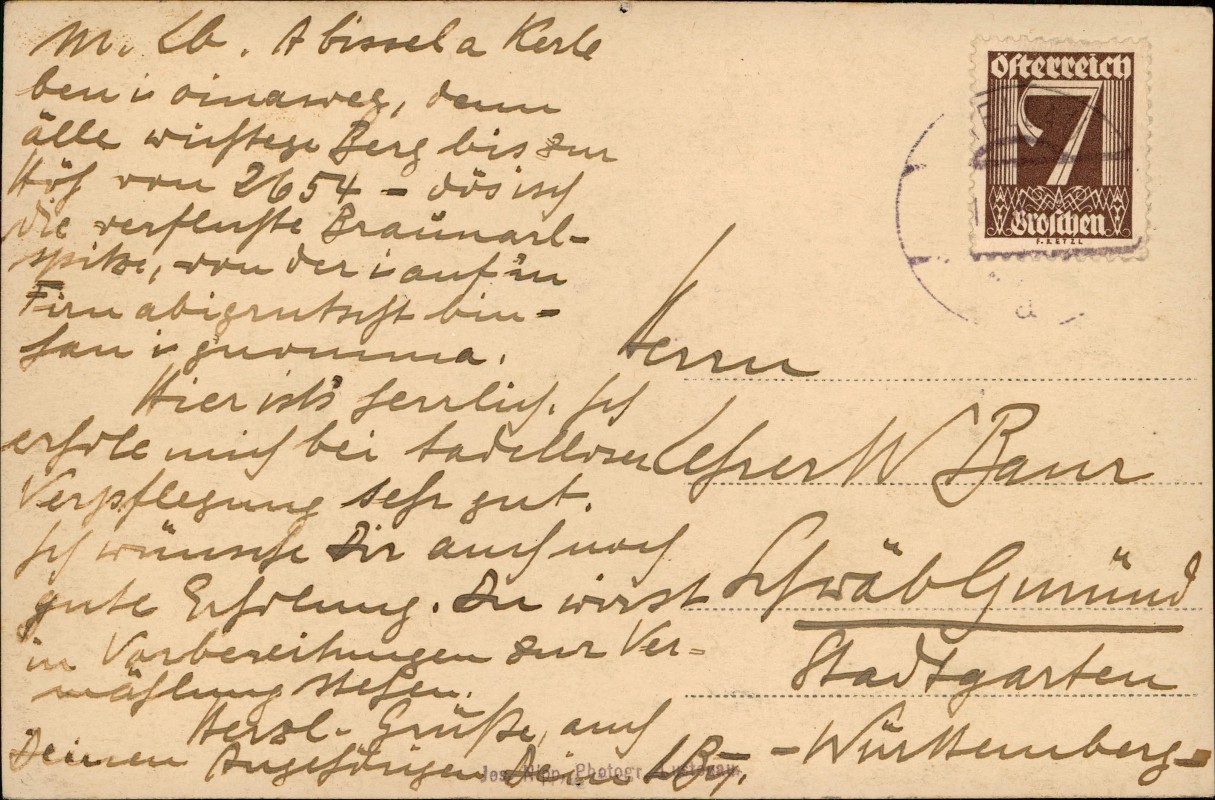 M. Lb. A bissel a Kerle
ben i oinaweg, denn
älle wüftege Berg bis zur
Höh von 2654 – dös isch
die verfluchte Braunarl-
spitze, von der i auf'm
Firn abigrutscht bin –
han i gnomma.
Hier ist's herrlich. Ich
erhole mich bei tadelloser
Verpflegung sehr gut.
Ich wünsche Dir auch noch
gute Erholung. Du wirst
in Vorbereitungen zur Ver-
mählung stehen.
Herzl. Grüße, auch
Deinen Angehörigen Dein
Österreich
7
Groschen
Herrn
Lehrer W Baur
Schwäb Gmünd
Stadtgarten
– Württemberg –
Jos. Photogr.